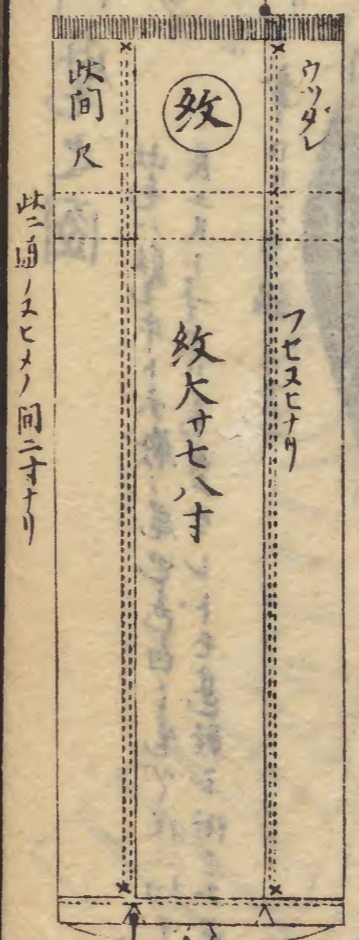 ウワダレ
フセヌヒナリ
紋
紋大サ七八寸
此間 尺
此二通ノヌヒメノ間二寸ナリ